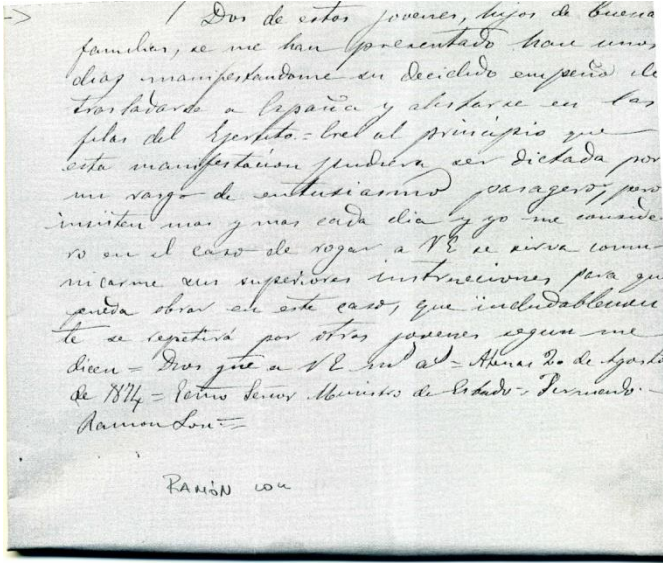 -> / Dos de estos jovenes, hijos de buena
familias, se me han presentado hace unos
dias manifestandome su decidido empeño de
trasladarse a España y alistarse en las
filas del Ejercito = Crei al principio que
esta manifestacion pudiera ser dictada por
un rasgo de entusiasmo pasagero, pero
insisten mas y mas cada dia y yo me conside
ro en el caso de rogar a VE se sirva comu
nicarme sus superiores instrucciones para que
pueda obrar en este caso, que indudablemen
te se repetirá por otros jovenes segun me
dicen = Dios gue a VE ms as = Atenas 20 de Agosto
de 1874 = Exmo Señor Ministro de Estado = Fernando
Ramon Lou =
RAMÓN LOU